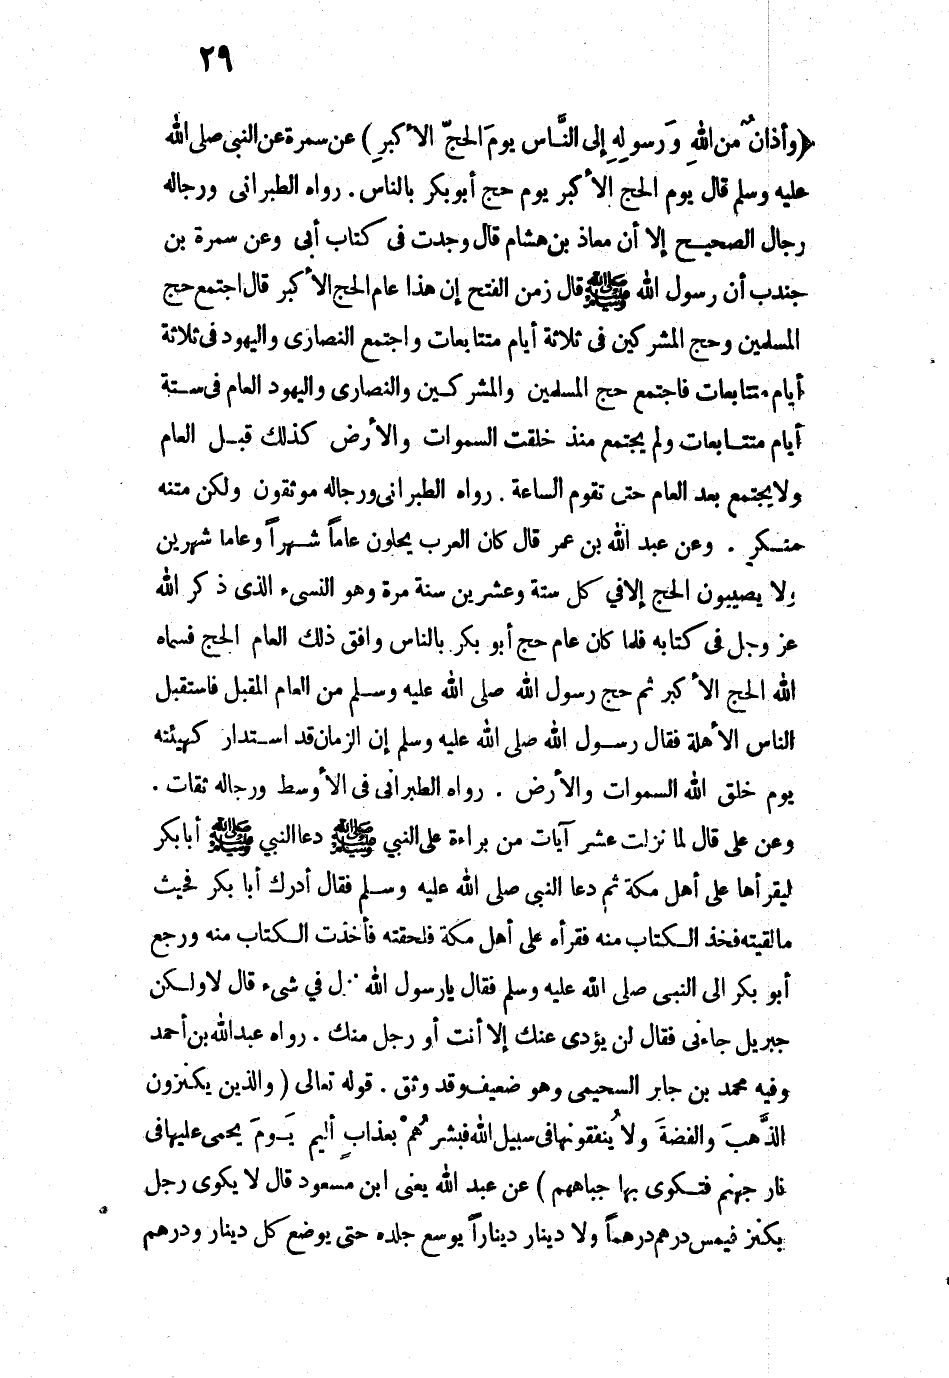 ٢٩
(وأذانٌ من اللهِ وَرسولِهِ إلى النَّاس يومَ الحجّ الأكبرِ) عن سمرة عن النبى صلى الله
عليه وسلم قال يوم الحج الأكبر يوم حج أبو بكر بالناس. رواه الطبرانى ورجاله
رجال الصحيح إلا أن معاذ بن هشام قال وجدت فى كتاب أبى وعن سمرة بن
جندب أن رسول الله ﷺ قال زمن الفتح إن هذا عام الحج الأكبر قال اجتمع حج
المسلمين وحج المشركين فى ثلاثة أيام متتابعات واجتمع النصارى واليهود فى ثلاثة
أيام متتابعات فاجتمع حج المسلمين والمشركين والنصارى واليهود العام فى ستة
أيام متتابعات ولم يجتمع منذ خلقت السموات والأرض كذلك قبل العام
ولا يجتمع بعد العام حتى تقوم الساعة. رواه الطبرانى ورجاله موثقون ولكن متنه
منكر. وعن عبد الله بن عمر قال كان العرب يحلون عاماً شهراً وعاما شهرين
ولا يصيبون الحج إلا في كل ستة وعشرين سنة مرة وهو النسىء الذى ذكر الله
عز وجل فى كتابه فلما كان عام حج أبو بكر بالناس وافق ذلك العام الحج فسماه
الله الحج الأكبر ثم حج رسول الله صلى الله عليه وسلم من العام المقبل فاستقبل
الناس الأهلة فقال رسول الله صلى الله عليه وسلم إن الزمان قد استدار كهيئته
يوم خلق الله السموات والأرض. رواه الطبرانى فى الأوسط ورجاله ثقات.
وعن على قال لما نزلت عشر آيات من براءة على النبي ﷺ دعا النبي ﷺ أبا بكر
ليقرأها على أهل مكة ثم دعا النبى صلى الله عليه وسلم فقال أدرك أبا بكر فحيث
ما لقيته فخذ الكتاب منه فقرأه على أهل مكة فلحقته فأخذت الكتاب منه ورجع
أبو بكر الى النبى صلى الله عليه وسلم فقال يارسول الله نزل في شىء قال لا ولكن
جبريل جاءنى فقال لن يؤدى عنك إلا أنت أو رجل منك. رواه عبد الله بن أحمد
وفيه محمد بن جابر السحيمى وهو ضعيف وقد وثق. قوله تعالى (والذين يكنزون
الذَّهبَ والفضةَ ولا يُنفقونها فى سبيل الله فبشرهُمْ بعذابٍ أليم يَومَ يحمى عليها فى
نار جهنم فتكوى بها جباههم) عن عبد الله يعنى ابن مسعود قال لا يكوى رجل
بكنز فيمس درهم درهماً ولا دينار ديناراً يوسع جلده حتى يوضع كل دينار ودرهم